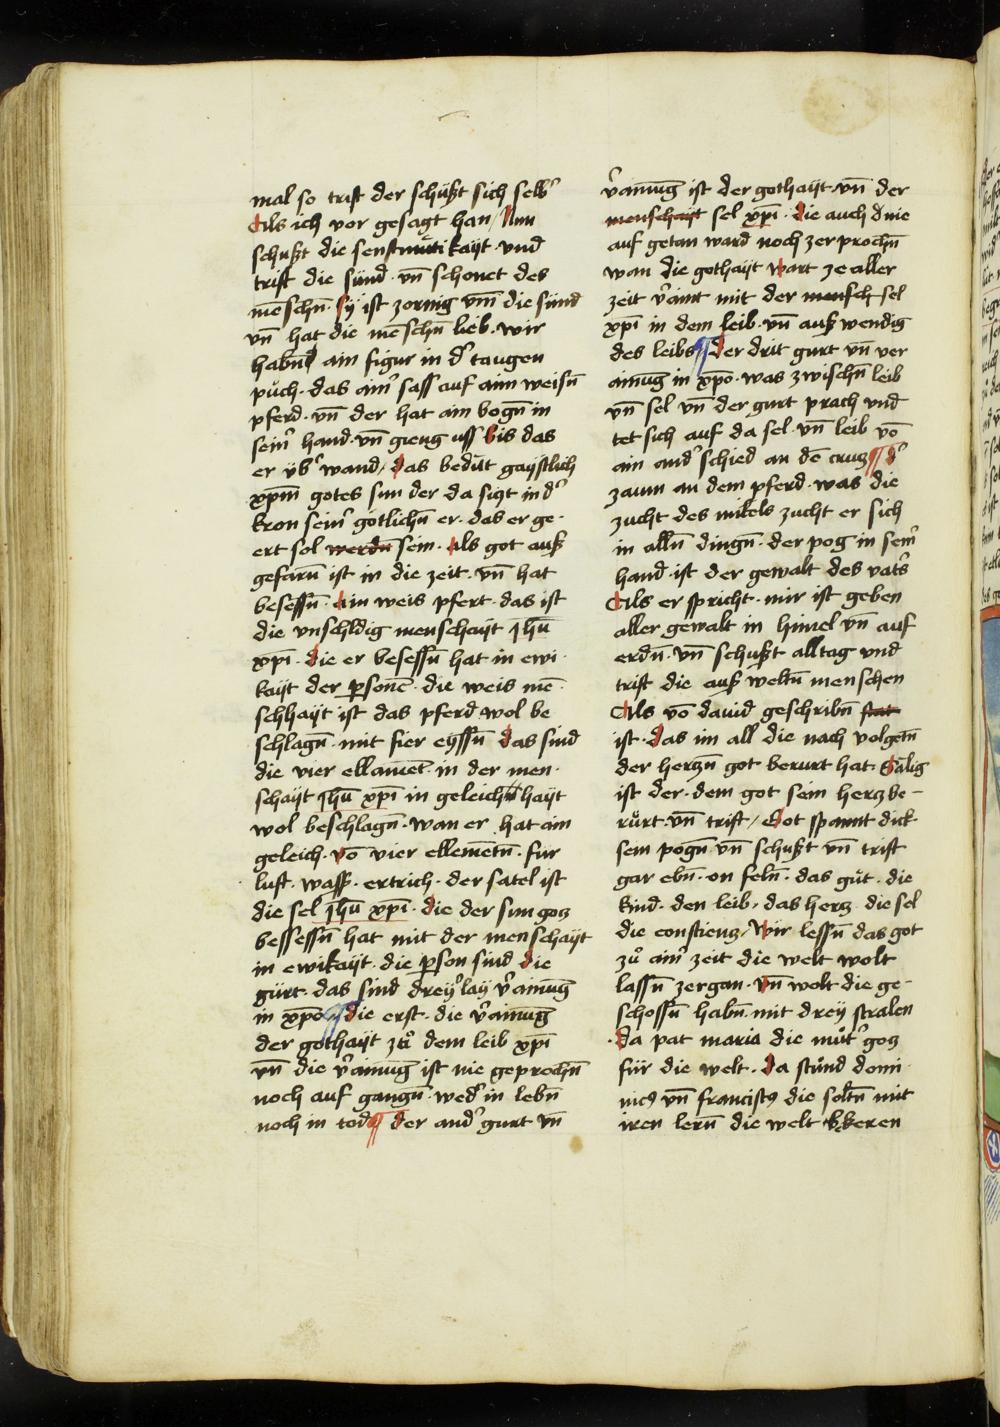 mal so trift der schüßt sich selbˀ
Als ich vor gesagt han / Nun
schußt die senftmütikaÿt · vnd
trift die sünd · vn̄ schonet des
mēschn̄ · Sÿ ist zornig vm̄ die sünd
vn̄ hat die mēschn̄ lieb · wir
habn̄ ain figur in dˀ taugen
půch · das ainˀ sass auf aim weisn̄
pferd · vn̄ der hat ain bogn̄ in
seinˀ hand · vn̄ gieng uss bis das
er ÿbˀ wand / das bedüt gaÿstlich
xp̄m gotes sun der da siczt in dˀ
kron seinˀ götlichn̄ er · das er ge-
ert sol werdn̄ sein · Als got auß
gefarn̄ ist in die zeit · vn̄ hat
besessn̄ · ain weis pfert · das ist
die vnschldig menschaÿt Jhū
xp̄i · die er besessn̄ hat in ewi-
kaÿt der p̱sonē · die weis mē-
schhaÿt ist das pferd wol be
schlagn̄ · mit fier eÿssn̄ das sind
die vier ellamēt · in der men-
schaÿt Jhū xp̄i in geleichn̄ haÿt
wol beschlagn̄ · wan er hat ain
geleich · vō vier ellemētn̄ · für
luft · wass · ertrich · der satel ist
die sel Jhū xp̄i · die der sun gocz
bessessn̄ hat mit der menschaÿt
in ewikaÿt · die p̱son sind die
gürt · das sind dreÿˀlaÿ vˀainūg
in xp̄o ¶ die erst · die vˀainūg
der gothaÿt zů dem leib xp̄i
vn̄ die vˀainūg ist nie geprochn̄
noch auf gangn̄ · wedˀ in lebn̄
noch in tod ¶ der andˀ gurt vn̄
vˀainūg ist der gothaÿt vn̄ der
menschaÿt sel xp̄i · die auch d nie
auf getan ward noch zerprochn̄
wan die gothaÿt wart ze aller
zeit vˀaint mit der mensch sel
xp̄i in dem leib · vn̄ auß wendig
des leibs ¶ der drit gurt vn̄ ver
ainūg in xp̄o · was zwischn̄ leib
vn̄ sel vn̄ der gurt prach vnd
tet sich auf da sel · vn̄ leib vō
ain andˀ schied an dē crucz ¶ dˀ
zaum an dem pferd · was die
zucht des mitels zucht er sich
in alln̄ dingn̄ · der pog in seinˀ
hand · ist der gewalt des vatˀs
Als er spricht · mir ist geben
aller gewalt in himel vn̄ auf
erdn̄ · vn̄ schußt alltag vnd
trift die auß weltn̄ menschen
Als vō dauid geschribn̄ stat
ist · das im all die nach volgetn̄
der herczn̄ got berurt hat · Sälig
ist der · dem got sein hercz be-
růrt · vn̄ trift / Got spannt dick
sein pogn̄ · vn̄ schußt vn̄ trift
gar ebn̄ · on feln̄ · das gůt · die
kind · den leib · das hercz · die sel
die conscienz / Wir lessn̄ das got
zů ainˀ zeit die welt wolt
lassn̄ zergan · vn̄ wolt die ge-
schossn̄ habn̄ · mit dreÿ stralen
Da pat maria die můtˀ gocz
für die welt · da stůnd domi-
nicꝰ vn̄ franciscꝰ die soltn̄ mit
iren lern̄ die welt bkeren